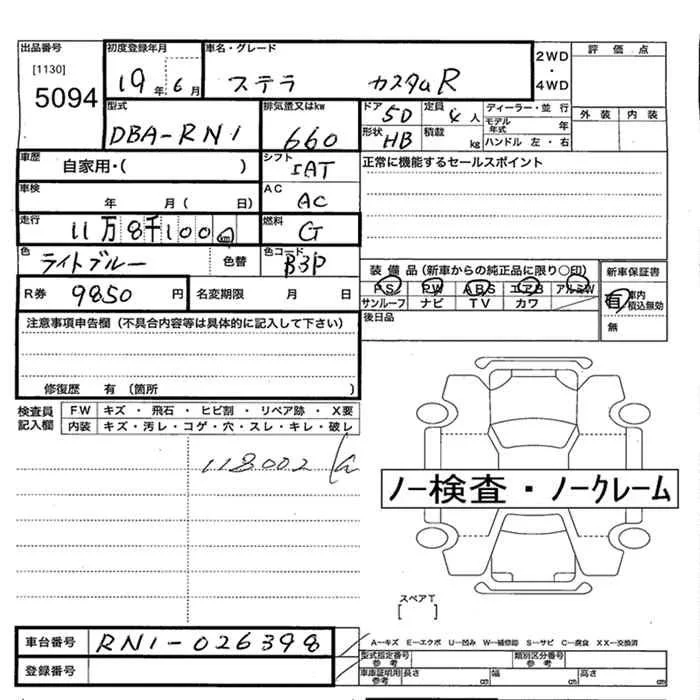 出品番号 初度登録年月 車名・グレード 2WD・4WD 評価点
[1130]
5094 19年 6月 ステラ カスタムR
型式 排気量又はkw ドア 5D 定員 4人 ディーラー・並行 外装 内装
DBA-RN1 660 形状 HB 積載 kg モデル年式 年
ハンドル 左・右
車歴 自家用・( ) シフト IAT 正常に機能するセールスポイント
車検 年 月( 日) AC AC
走行 11万8千100 燃料 G
色 ライトブルー 色替 色コード B3P 装備品(新車からの純正品に限り○印) 新車保証書
R券 9850円 名変期限 月 日 PS PW ABS エアB アルミW 有 車内積込無効
サンルーフ ナビ TV カワ 無
注意事項申告欄(不具合内容等は具体的に記入して下さい) 後日品
修復歴 有(箇所 )
検査員記入欄 FW キズ・飛石・ヒビ割・リペア跡・X要
内装 キズ・汚レ・コゲ・穴・スレ・キレ・破レ
118002
ノー検査・ノークレーム
スペアT
[ ]
車台番号 RN1-026398 A―キズ E―エクボ U―凹み W―補修跡 S―サビ C―腐食 XX―交換済
登録番号 型式指定番号 参考 類別区分番号 参考
車庫証明用 参考 長さ 幅 高さ